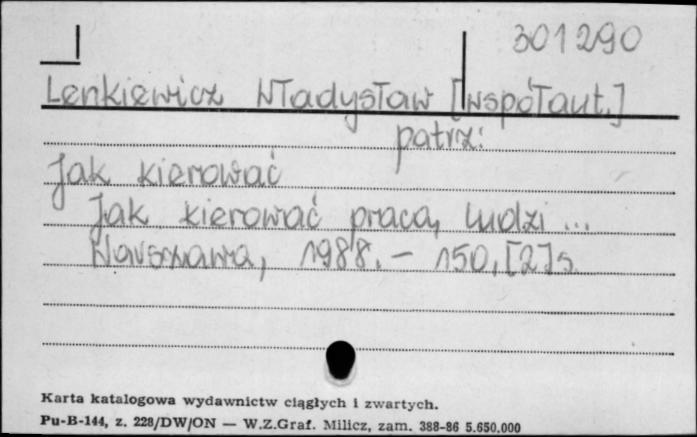 301290
Lenkiewicz Władysław [współaut.]
patrz:
Jak kierować
Jak kierować pracą ludzi ...
Warszawa, 1988. – 150, [2] s.
Karta katalogowa wydawnictw ciągłych i zwartych.
Pu-B-144, z. 228/DW/ON — W.Z.Graf. Milicz, zam. 388-86 5.650.000